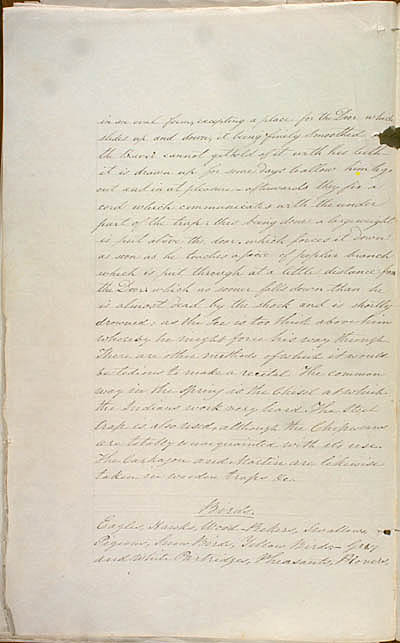 in an oval form, excepting a place for the Door which
slides up and down, it being finely smoothed
the beaver cannot get hold of it with his teeth
it is drawn up for some days to allow him to go
out and in at pleasure – afterwards they fix a
cord which communicates with the under
part of the trap: this being done a large weight
is put above the door, which forces it down
as soon as he touches a piece of poplar branch
which is put through at a little distance from
the Door which no sooner falls down than he
is almost dead by the shock and is shortly
drowned; as the Ice is too thick above him
whereby he might force his way through
There are other methods of which it would
be tedious to make a recital. The common
way in the Spring is the Chisel at which
the Indians work very hard. The Steel
trap is also used, although the Chipewans
are totally unacquainted with its use.
The Carkajou and Martin are likewise
taken in wooden traps &c.
Birds.
Eagles, Hawks, Wood-Peckers, Swallows,
Pigeons, Snow Birds, Yellow Birds – Gray
and White Partridges, Pheasants, Plovers,